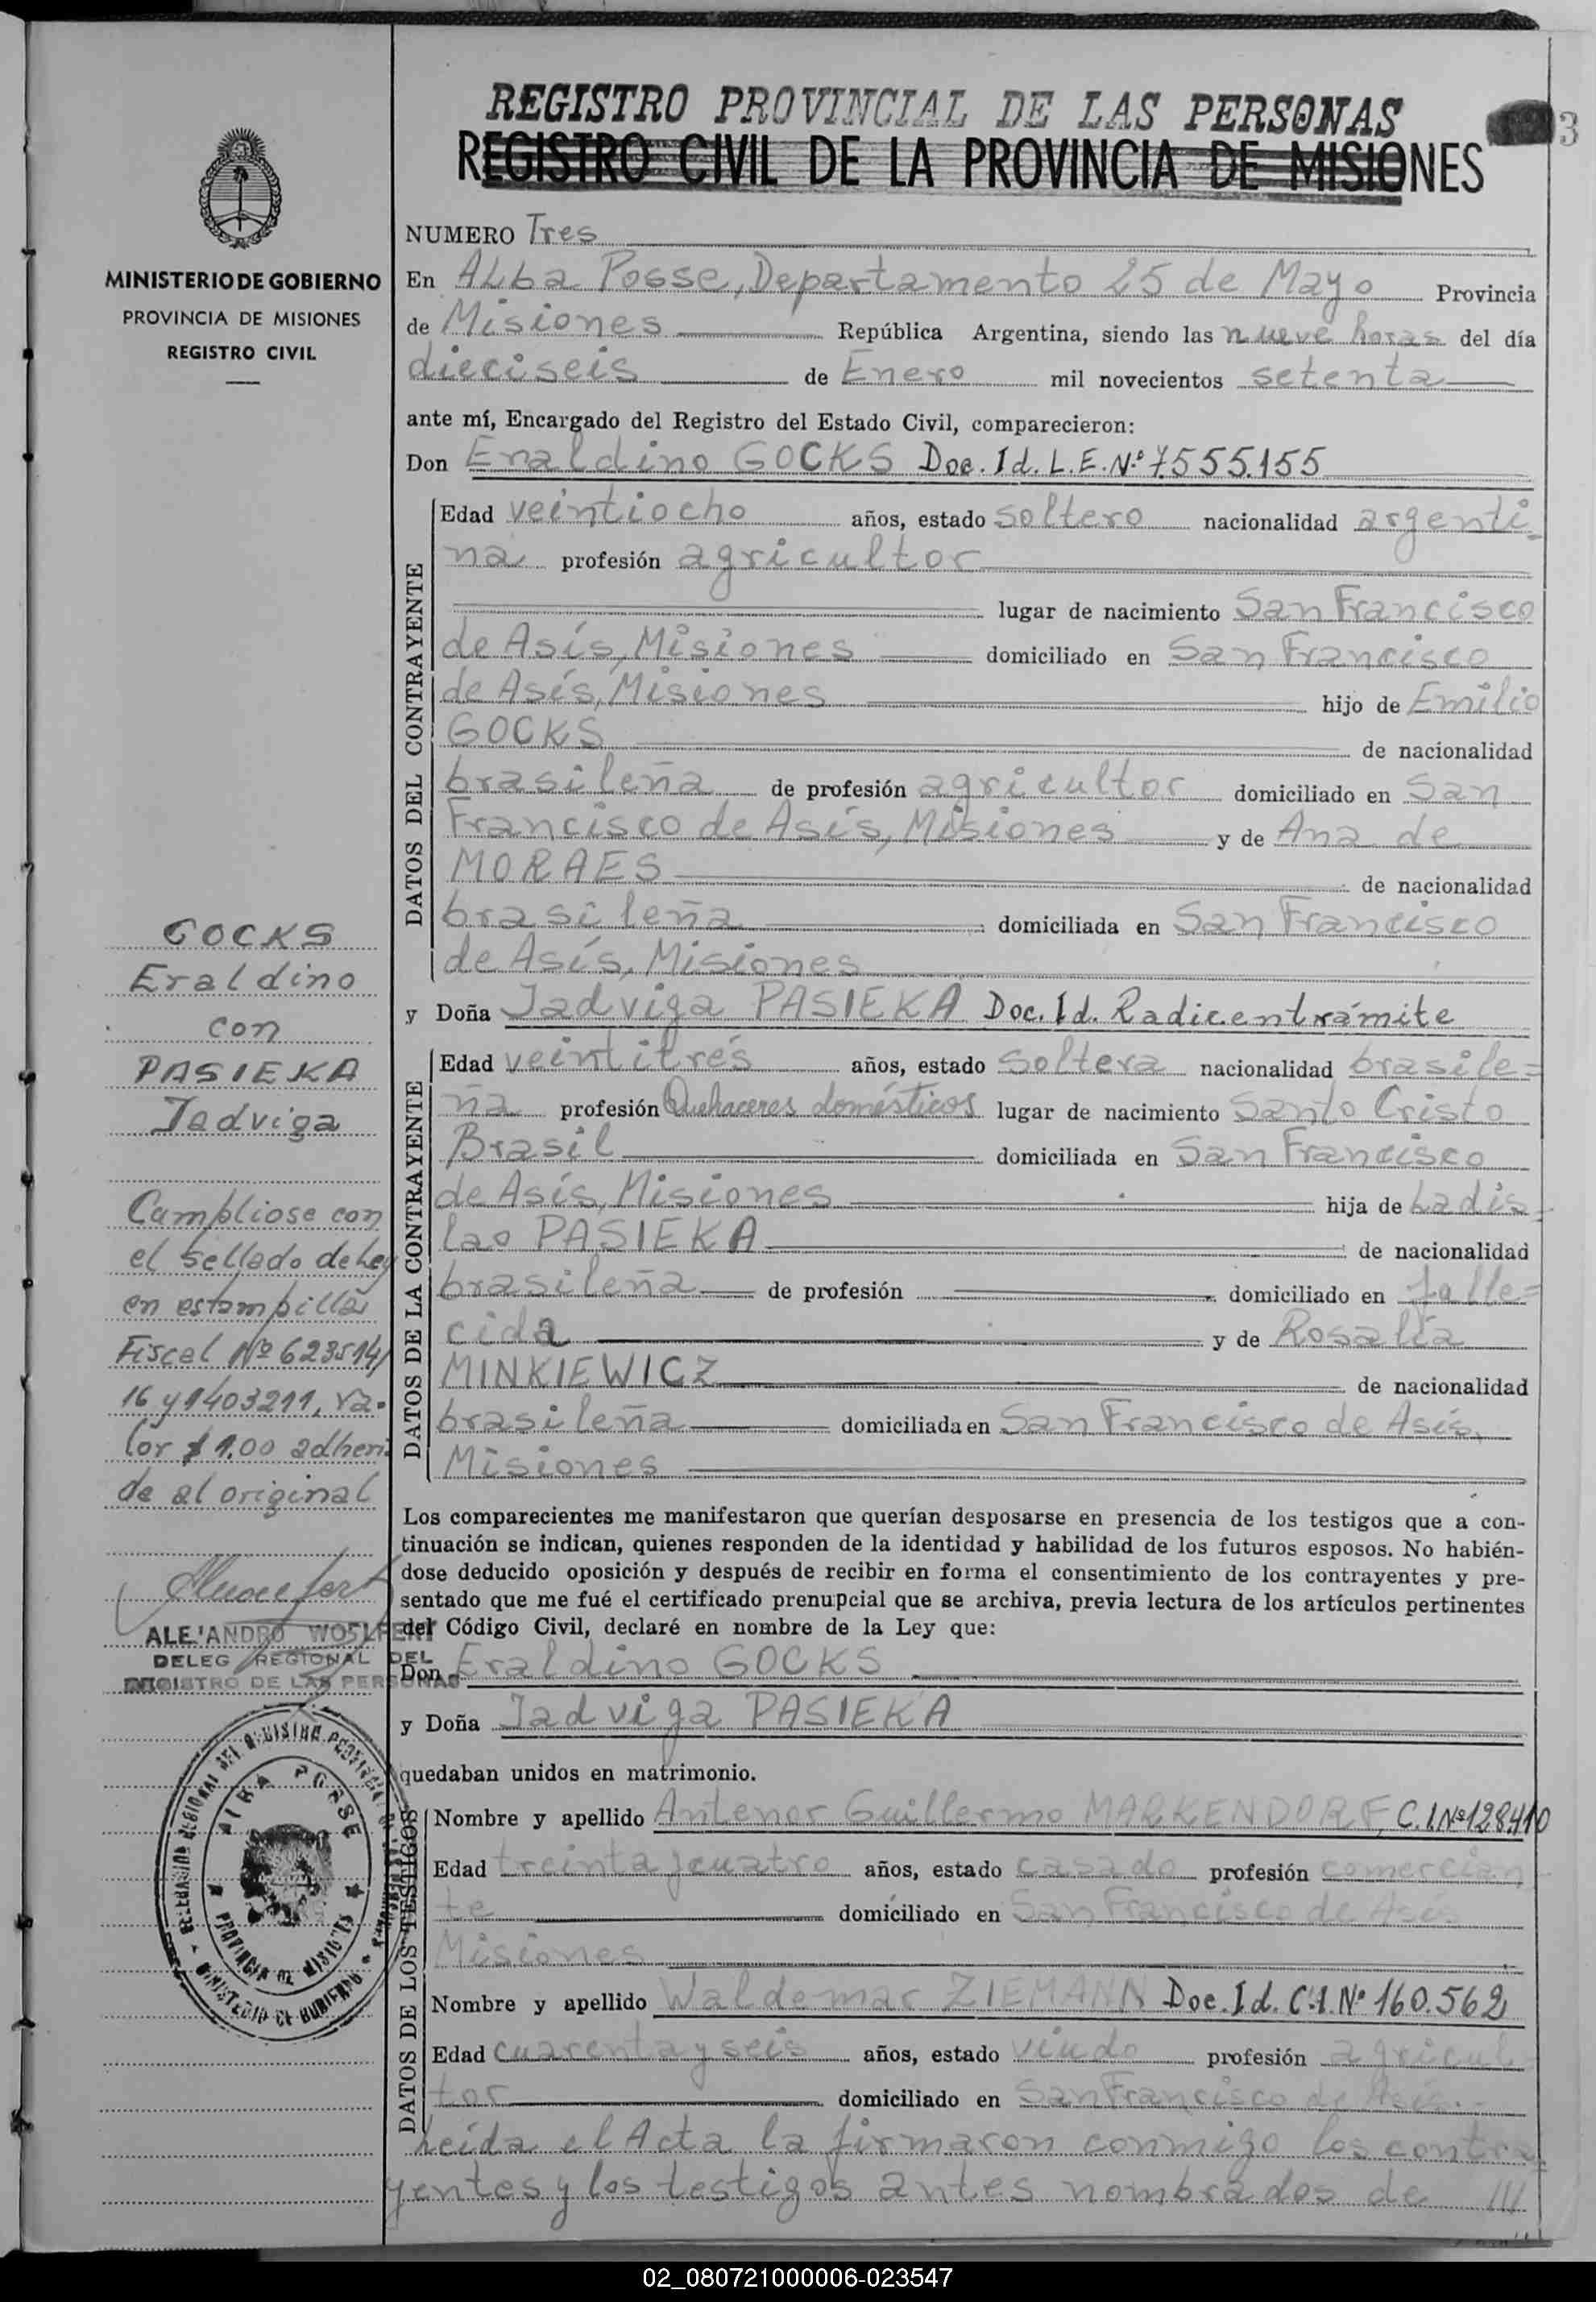 REGISTRO PROVINCIAL DE LAS PERSONAS
REGISTRO CIVIL DE LA PROVINCIA DE MISIONES
3
MINISTERIO DE GOBIERNO
PROVINCIA DE MISIONES
REGISTRO CIVIL
NUMERO Tres
En Alba Posse, Departamento 25 de Mayo Provincia
de Misiones República Argentina, siendo las nueve horas del día
dieciseis de Enero mil novecientos setenta
ante mí, Encargado del Registro del Estado Civil, comparecieron:
Don Eraldino GOCKS Doc. Id. L.E. Nº 7.555.155
DATOS DEL CONTRAYENTE
Edad veintiocho años, estado soltero nacionalidad argenti-
na profesión agricultor
lugar de nacimiento San Francisco
de Asís, Misiones domiciliado en San Francisco
de Asís, Misiones hijo de Emilio
GOCKS de nacionalidad
brasileña de profesión agricultor domiciliado en San
Francisco de Asís, Misiones y de Ana de
MORAES de nacionalidad
brasileña domiciliada en San Francisco
de Asís, Misiones
y Doña Jadviga PASIEKA Doc. Id. Radic. en trámite
DATOS DE LA CONTRAYENTE
Edad veintitrés años, estado soltera nacionalidad brasile=
ña profesión Quehaceres domésticos lugar de nacimiento Santo Cristo
Brasil domiciliada en San Francisco
de Asís, Misiones hija de Ladis=
lao PASIEKA de nacionalidad
brasileña de profesión domiciliado en falle=
cida y de Rosalía
MINKIEWICZ de nacionalidad
brasileña domiciliada en San Francisco de Asís,
Misiones
Los comparecientes me manifestaron que querían desposarse en presencia de los testigos que a con-
tinuación se indican, quienes responden de la identidad y habilidad de los futuros esposos. No habién-
dose deducido oposición y después de recibir en forma el consentimiento de los contrayentes y pre-
sentado que me fué el certificado prenupcial que se archiva, previa lectura de los artículos pertinentes
del Código Civil, declaré en nombre de la Ley que:
Don Eraldino GOCKS
y Doña Jadviga PASIEKA
quedaban unidos en matrimonio.
DATOS DE LOS TESTIGOS
Nombre y apellido Antenor Guillermo MARKENDORF, C.I. Nº 128410
Edad treinta y cuatro años, estado casado profesión comercian
te domiciliado en San Francisco de Asís
Misiones
Nombre y apellido Waldemar ZIEMANN Doc. Id. C.I. Nº 160.562
Edad cuarenta y seis años, estado viudo profesión agricul
tor domiciliado en San Francisco de Asís.-
Leída el Acta la firmaron conmigo los contra
yentes y los testigos antes nombrados de ///
GOCKS
Eraldino
con
PASIEKA
Jadviga
Cumpliose con
el sellado de Ley
en estampilla
Fiscal Nº 623514/
16 y 1403211, va-
lor $ 1.00 adheri
da al original
DELEG REGIONAL DEL
REGISTRO DE LAS PERSONAS
ALBA POSSE
PROVINCIA DE MISIONES
MINISTERIO DE GOBIERNO
02_080721000006-023547